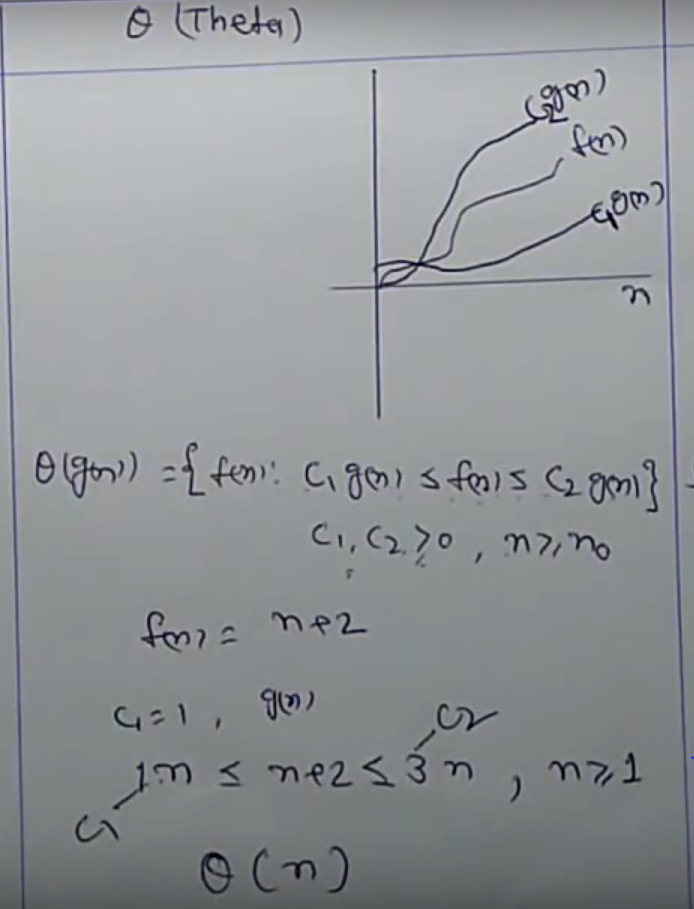 θ (Theta)
C2g(n)
f(n)
C1g(n)
n
θ(g(n)) = { f(n): C1 g(n) ≤ f(n) ≤ C2 g(n) }
C1, C2 > 0 , n ≥ n0
f(n) = n+2
C1 = 1 , g(n)
C2
1.n ≤ n+2 ≤ 3n , n ≥ 1
C1
θ(n)